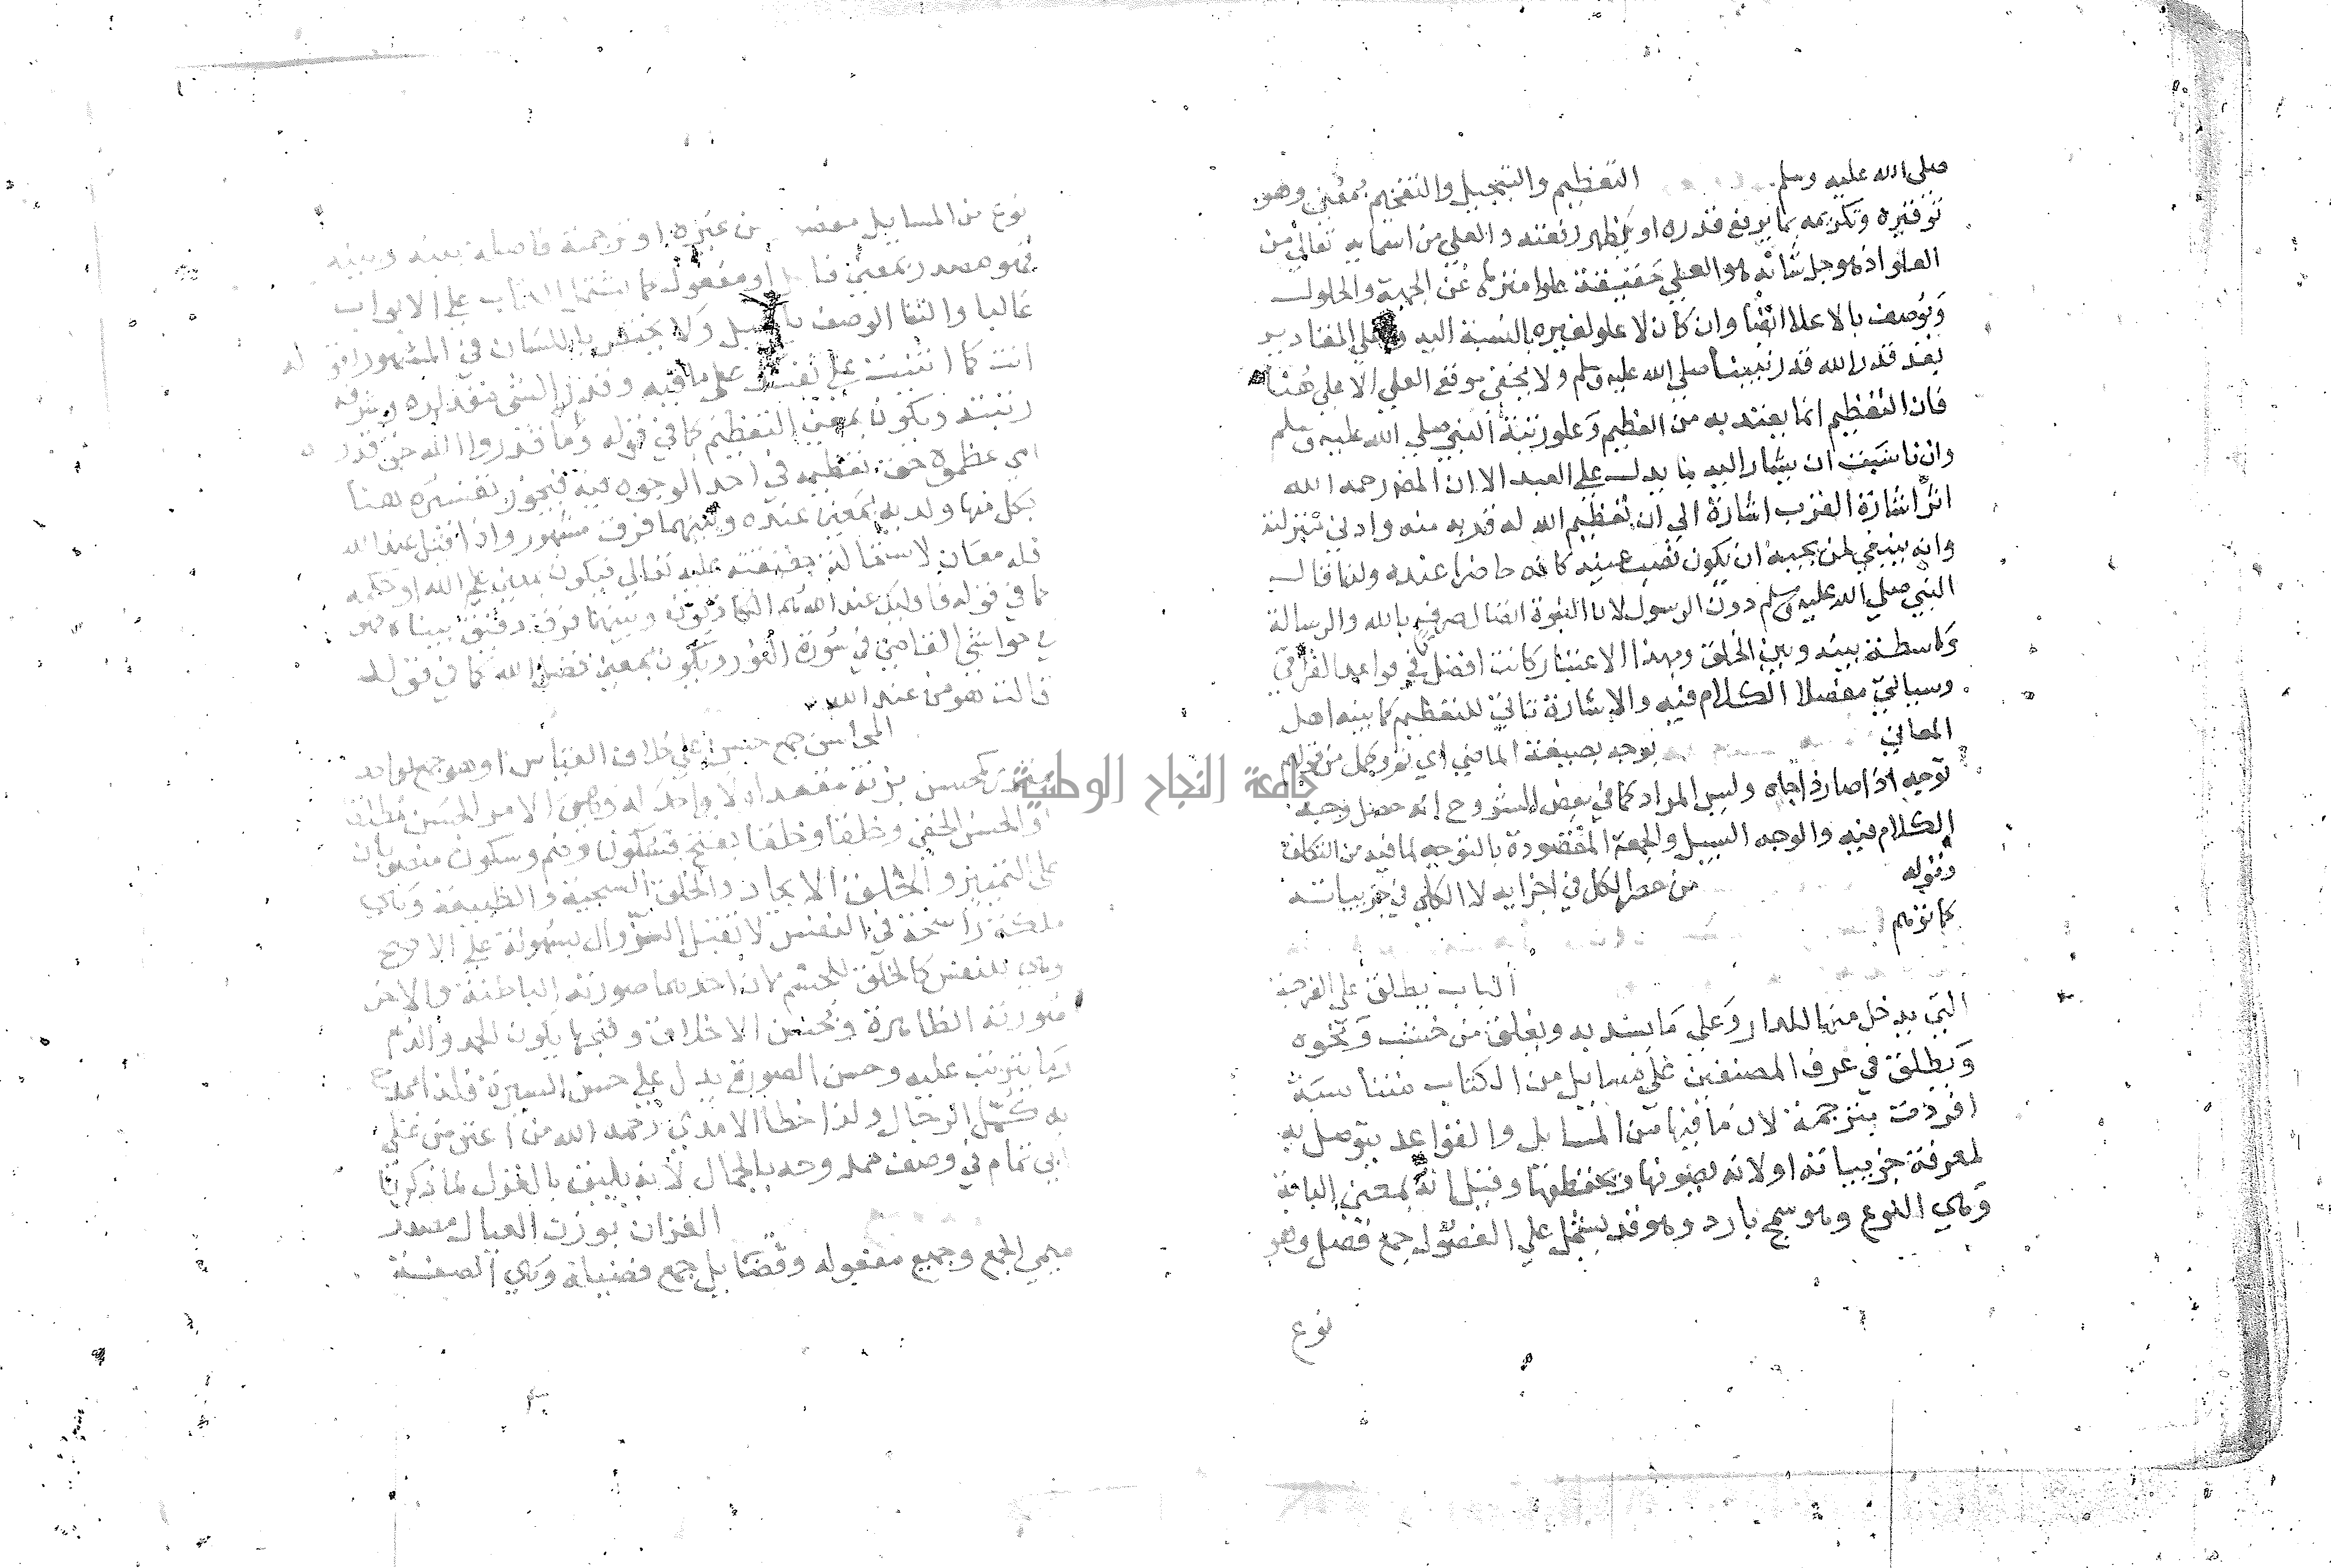 صلى الله عليه وسلم التعظيم والتبجيل والتفخيم بمعنى وهو
توقيره وتكريمه بما يرفع قدره او يظهر رفعته والعلي من اسمايه تعالى من
العلو اذ هو جل شانه هو العلي حقيقة علوا منزها عن الجهة والحلول
ويوصف بالاعلا ايضا وان كان لا علو لغيره بالنسبة اليه المقادير
بعد قدر الله قدر نبينا صلى الله عليه وسلم ولا يخفى موقع العلي الاعلى هنا
فان التعظيم انما يعتد به من العظيم وعلو رتبة النبي صلي الله عليه وسلم
وان ناسب ان يشار اليه بما يدل على البعد الا ان المص رحمه الله
اثر اشارة القرب اشارة الي ان تعظيم الله له قربه منه وادني منزلته
وانه ينبغي لمن يحبه ان يكون نصب عينه كانه حاضرا عنده ولذا قال
النبي صلي الله عليه وسلم دون الرسول لان النبوة اتصال بالله والرسالة
واسطة بينه وبين الخلق وبهذا الاعتبار كانت افضل في قواعد القرافي
وسياتي مفصلا الكلام فيه والاشارة تاتي للتعظيم كما بينه اهل
المعاني توجه بصيغة الماضي اي من قولهم
توجه اذا صار ذا جاه وليس المراد كما في بعض الشروح انه حصل وجه
الكلام فيه والوجه السبيل والجهة المقصودة بالتوجه لما فيه من التكلف
وقوله من حصر الكل في اجزايه لا الكلي في جزيياته
كما توهم
الباب يطلق على الفرجة
التي يدخل منها للدار وعلى ما يسد به ويغلق من خشب ونحوه
ويطلق في عرف المصنفين على مسايل من الكتاب متناسبة
افردت بترجمة لان ما فيها من المسايل والقواعد يتوصل به
لمعرفة جزيياته اولانه يصونها ويحفظها وقيل انه بمعنى البابة
وهي النوع وهو سمج بارد وهو قد يشمل على الفصول جمع فصل وهو
نوع
نوع من المسايل من غيره او ترجمة فاصلة بينه وبينه
فهو مصدر بمعنى فاعل او مفعول كما يشتمل الكتاب على الابواب
غالبا والثنا الوصف بالجميل ولا يختص باللسان في المشهور
انت كما اثنيت على نفسك على ما فيه وقدر الشي مقداره وشرفه
رتبته ويكون بمعنى التعظيم كما في قوله وما قدروا الله حق قدره
اي عظموه حق تعظيمه في احد الوجوه فيه فيجوز تفسيره هنا
بكل منها ولديه بمعنى عنده وبينهما فرق مشهور واذا قيل عند الله
فله معان لاستحالة حقيقته عليه تعالي فيكون بمعنى علم الله او حكمه
كما في قوله فاوليك عند الله هم الكاذبون وبينهما فرق دقيق بيناه
في حواشي القاضي في سورة النور ويكون بمعنى فضل الله كما في قوله
قالت هو من عند الله
المحاسن جمع حسن على خلاف القياس او هو جمع لواحد
كمحسن بزنة مقعد او لا واحد له وهي الامر الحسن مطلقا
او الحسن الخفي وخلقا وخلقا بفتح فسكون وضم وسكون منصوبان
على التمييز والخلق الايجاد والخلق السجية والطبيعة وهي
ملكة راسخة في النفس لا تقبل الزوال بسهولة على الاصح
وهي للنفس كالخلق للجسم فان احدهما صورته الباطنة والاخر
صورته الظاهرة وبحسن الاخلاق وقبحها يكون الحمد والذم
وما يترتب عليه وحسن الصورة يدل على حسن السيرة فلذا
به كمل الرجال ولذا خطا الامدي رحمه الله من اعترض علي
ابي تمام في وصف ممدوحه بالجمال لانه يليق بالغزل لما ذكرنا
القران بوزن مصدر
بمعني الجمع وجميع مفعوله وفضايل جمع فضيلة وهي الصفة
جامعة النجاح الوطنية